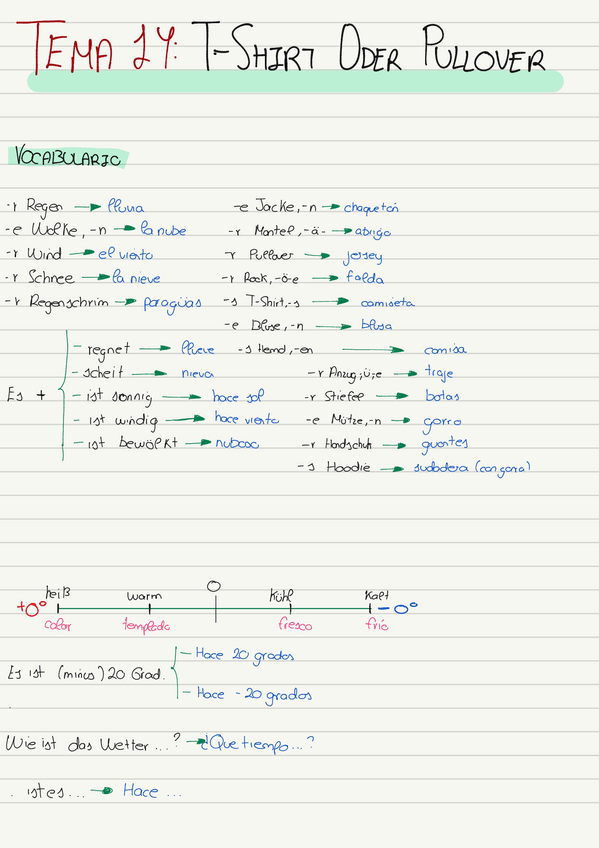 TEMA 14: T-SHIRT ODER PULLOVER
VOCABULARIO
-r Regen → lluvia
-e Wolke, -n → la nube
-r Wind → el viento
-r Schnee → la nieve
-r Regenschrim → paragüas
Es +
- regnet → llueve
- scheit → nieva
- ist sonnig → hace sol
- ist windig → hace viento
- ist bewölkt → nuboso
-e Jacke, -n → chaquetón
-r Mantel, -ä- → abrigo
-r Pullover → jersey
-r Rock, -ö-e → falda
-s T-Shirt, -s → camiseta
-e Bluse, -n → blusa
-s Hemd, -en → camisa
-r Anzug, ü, e → traje
-r Stiefel → botas
-e Mütze, -n → gorro
-r Handschuh → guantes
-s Hoodie → sudadera (con gorro)
+0° heiß warm O Kühl Kalt -0°
calor templado fresco frío
Es ist (minus) 20 Grad.
- Hace 20 grados
- Hace -20 grados
Wie ist das Wetter ...? → ¿Que tiempo...?
. ist es ... → Hace ...